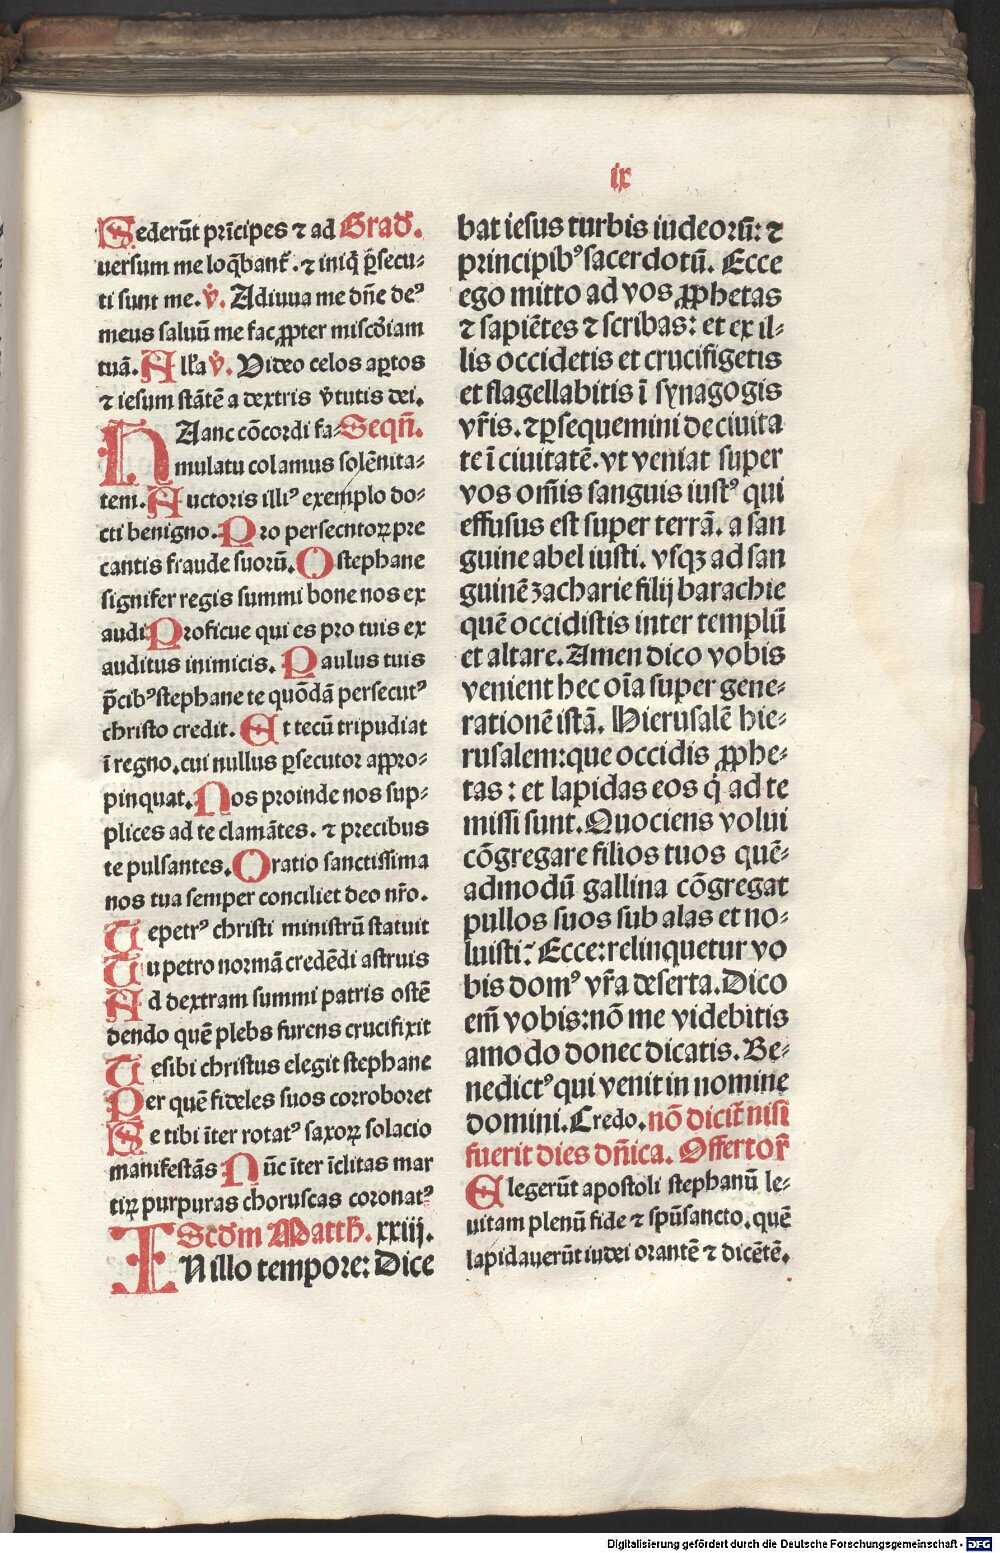 ix
Sederūt prīcipes ⁊ ad Grad̄.
uersum me loq̄bant̄. ⁊ iniq̄ p̄secu-
ti sunt me. v̄. Adiuua me dn̄e de⁹
meus saluū me fac ꝓpter misc̄diam
tuā. All̄a v̄. Video celos aꝑtos
⁊ iesum stātē a dextris v̄tutis dei.
HAanc cōcordi fa- Seqn̄.
mulatu colamus solēnita-
tem. Auctoris illi⁹ exemplo do-
cti benigno. Pro persecntoꝝ pre
cantis fraude suorū. O stephane
signifer regis summi bone nos ex
audi Proficue qui es pro tuis ex
auditus inimicis. Paulus tuis
p̄cib⁹ stephane te quōdā persecut⁹
christo credit. Et tecū tripudiat
ī regno. cui nullus ꝑsecutor appro-
pinquat. Nos proinde nos sup-
plices ad te clamātes. ⁊ precibus
te pulsantes. Oratio sanctissima
nos tua semper conciliet deo nr̄o.
Te petr⁹ christi ministrū statuit
Tu petro normā credēdi astruis
Ad dextram summi patris ostē
dendo quē plebs furens crucifixit
Te sibi christus elegit stephane
Per quē fideles suos corroboret
Se tibi īter rotat⁹ saxoꝝ solacio
manifestās Nūc īter īclitas mar
tiꝝ purpuras choruscas coronat⁹
Scd̄m Matth̄. xxiij.
IN illo tempore: Dice
bat iesus turbis iudeorū: ⁊
principib⁹ sacerdotū. Ecce
ego mitto ad vos ꝓphetas
⁊ sapiētes ⁊ scribas: et ex il-
lis occidetis et crucifigetis
et flagellabitis ī synagogis
vr̄is. ⁊ ꝑsequemini de ciuita
te ī ciuitatē. vt veniat super
vos om̄is sanguis iust⁹ qui
effusus est super terrā. a san
guine abel iusti. vsqꝫ ad san
guinē zacharie filij barachie
quē occidistis inter templū
et altare. Amen dico vobis
venient hec oīa super gene-
rationē istā. Hierusalē hie-
rusalem: que occidis ꝓphe-
tas: et lapidas eos q̄ ad te
missi sunt. Quociens volui
cōgregare filios tuos quē-
admodū gallina cōgregat
pullos suos sub alas et no-
luisti: Ecce: relinquetur vo
bis dom⁹ vr̄a deserta. Dico
em̄ vobis: nō me videbitis
amodo donec dicatis. Be-
nedict⁹ qui venit in nomine
domini. Credo. nō dicit̄ nisi
fuerit dies dn̄ica. Offertor̄
Elegerūt apostoli stephanū le-
uitam plenū fide ⁊ spū sancto. quē
lapidauerūt iudei orantē ⁊ dicētē.
Digitalisierung gefördert durch die Deutsche Forschungsgemeinschaft - DFG